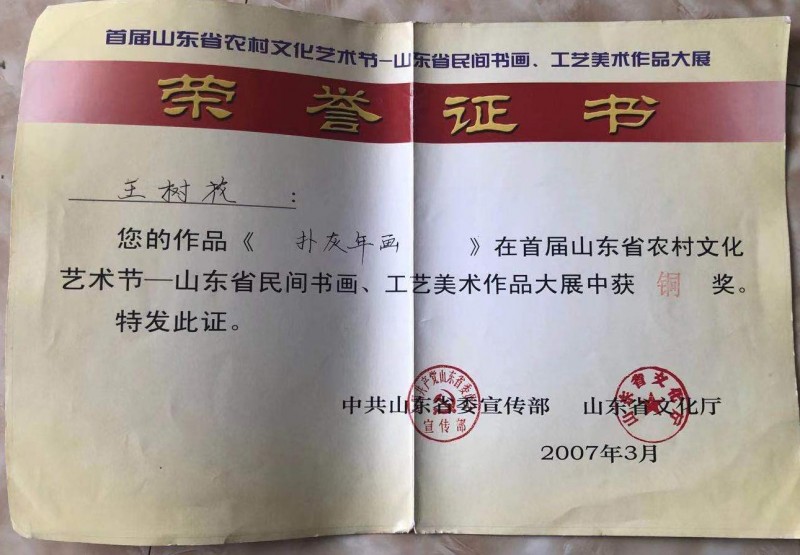 首届山东省农村文化艺术节—山东省民间书画、工艺美术作品大展
荣誉证书
王树花：
您的作品《扑灰年画》在首届山东省农村文化
艺术节—山东省民间书画、工艺美术作品大展中获 铜 奖。
特发此证。
中共山东省委宣传部 山东省文化厅
2007年3月